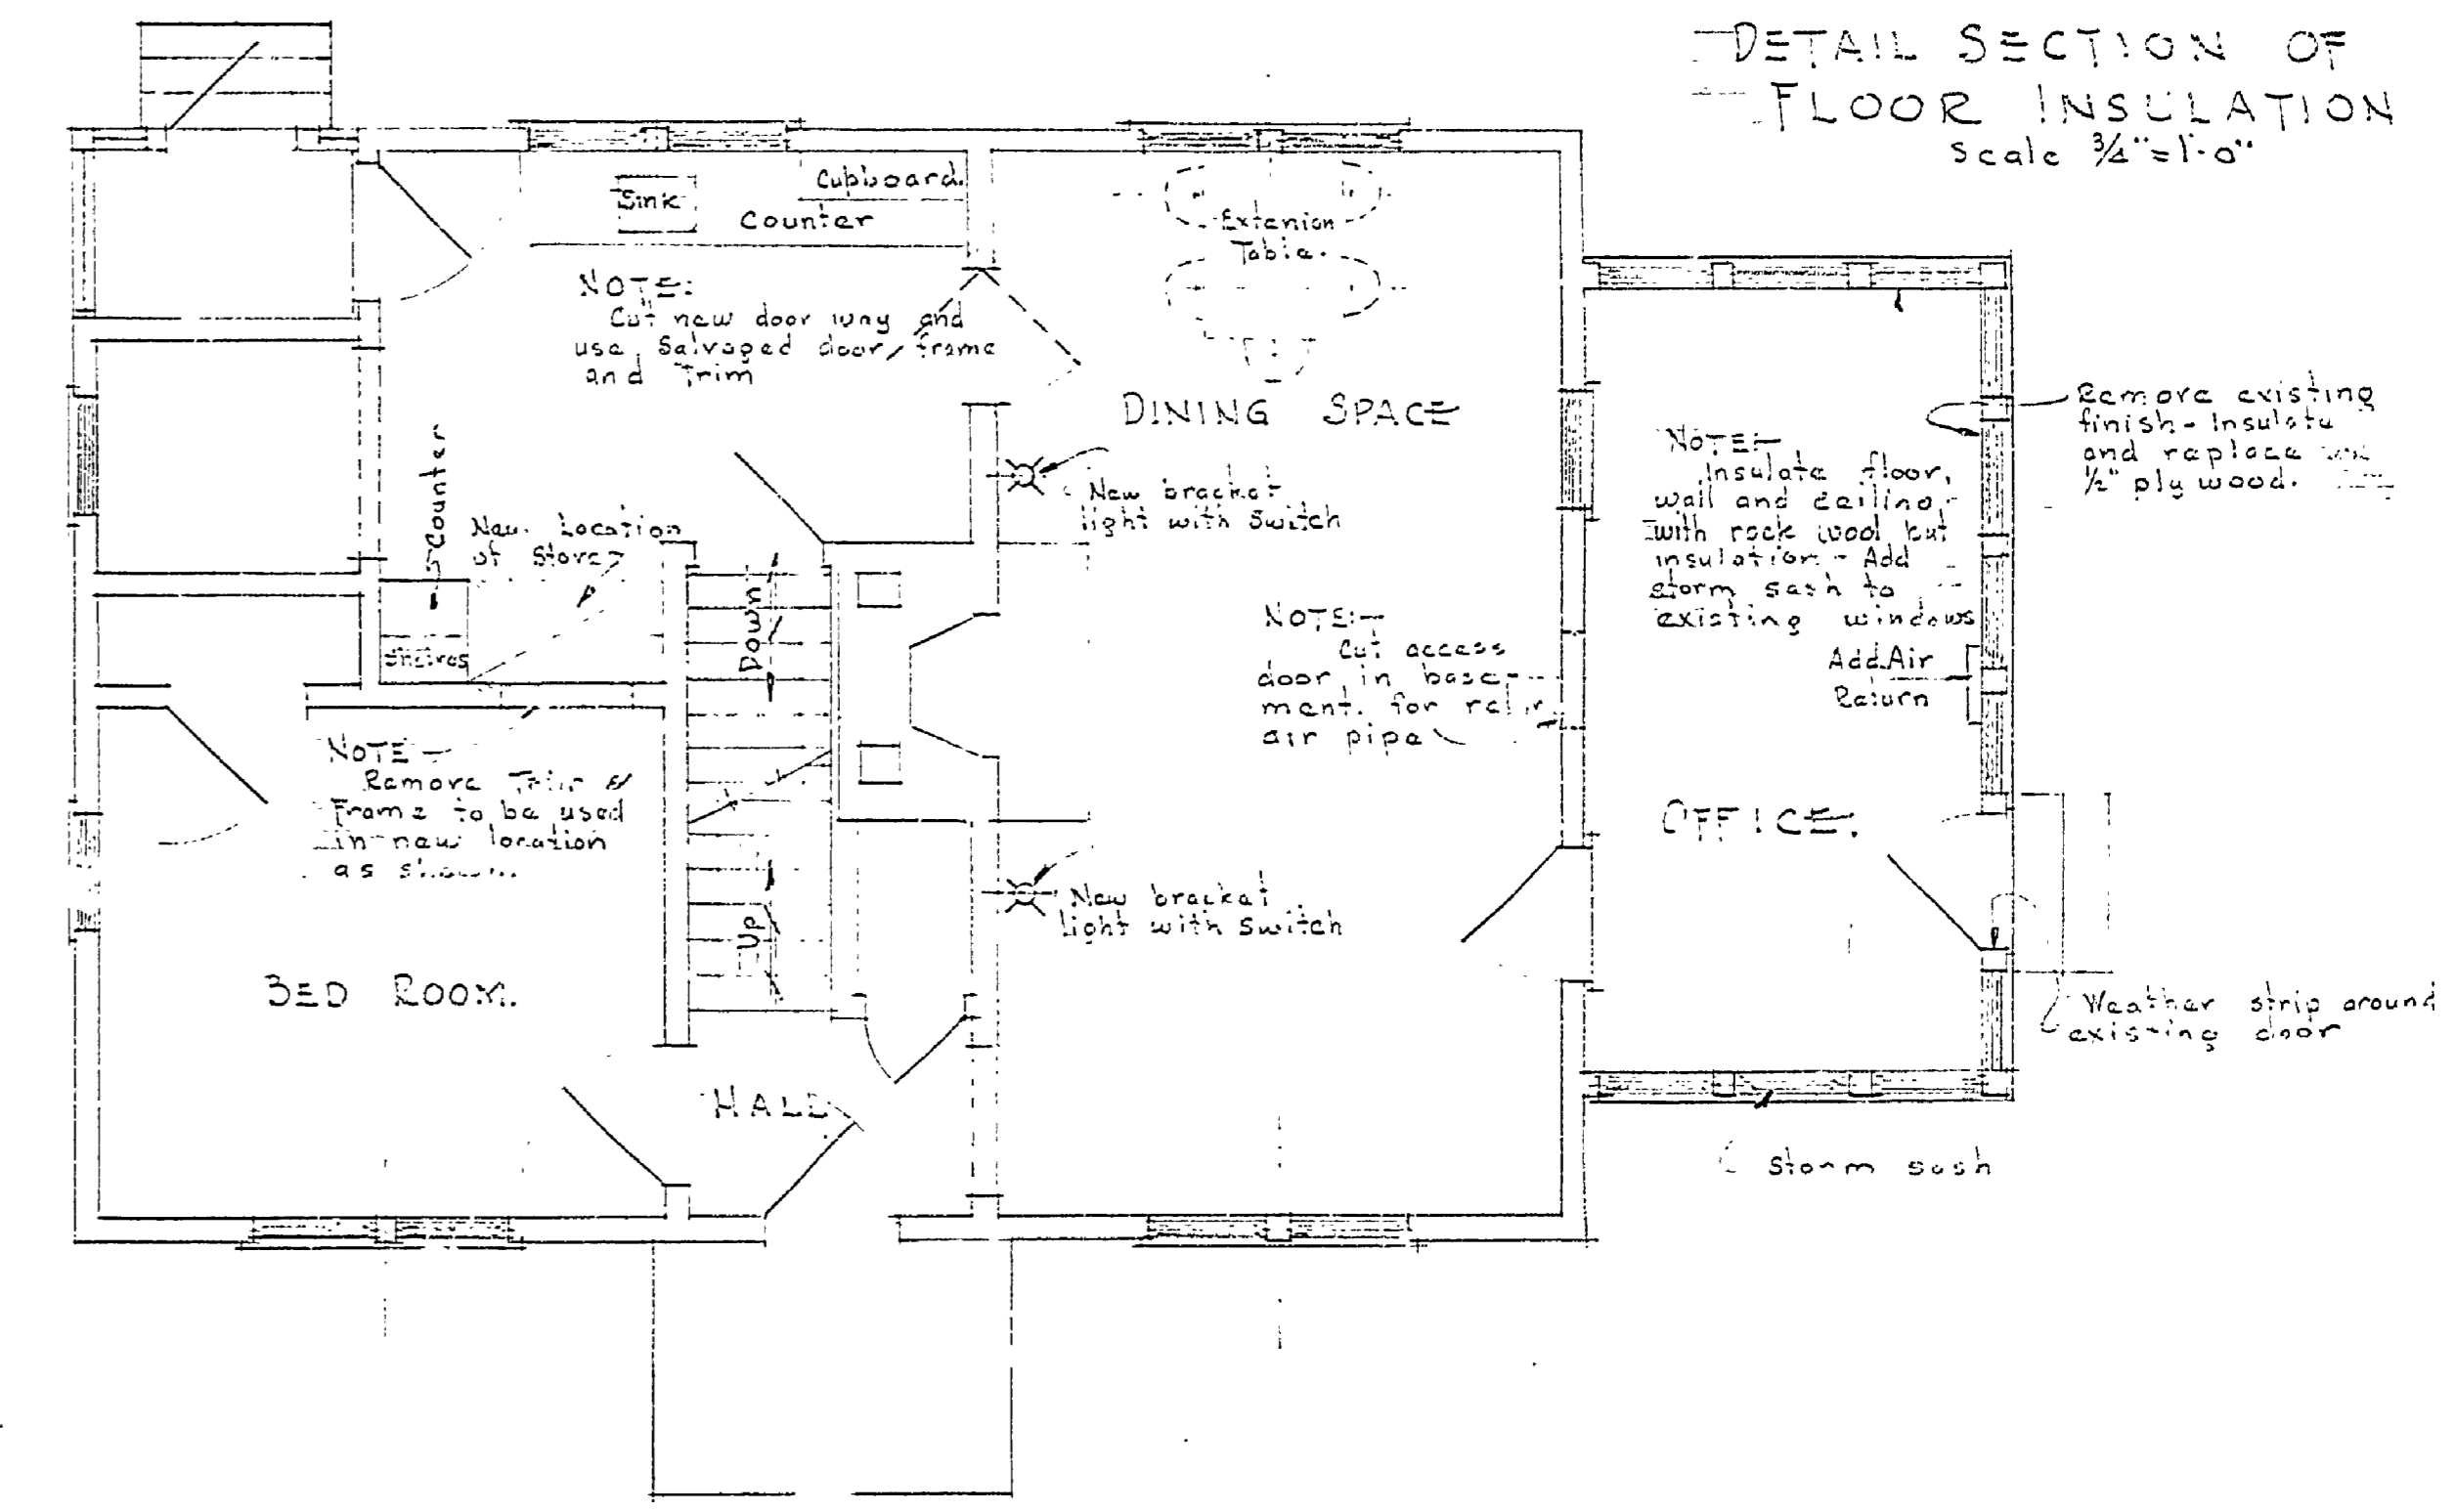 DETAIL SECTION OF
FLOOR INSULATION
Scale 3/4"=1'-0"
Sink
Cupboard.
Counter
Extenion
Table.
NOTE:
Cut new door way and
use Salvaged door frame
and Trim
DINING SPACE
Counter
New Location
of Stove
Shelves
New bracket
light with Switch
Down
NOTE:-
Cut access
door in base-
ment. for
air pipe
NOTE:-
Insulate floor,
wall and ceiling
with rock wool bat
insulation - Add
storm sash to
existing windows
Remove existing
finish - Insulate
and replace
1/2" ply wood.
Add Air
Return
NOTE -
Remove Trim &
Frame to be used
in new location
as shown.
OFFICE.
New bracket
light with Switch
Up
BED ROOM.
HALL
Weather strip around
existing door
Storm sash